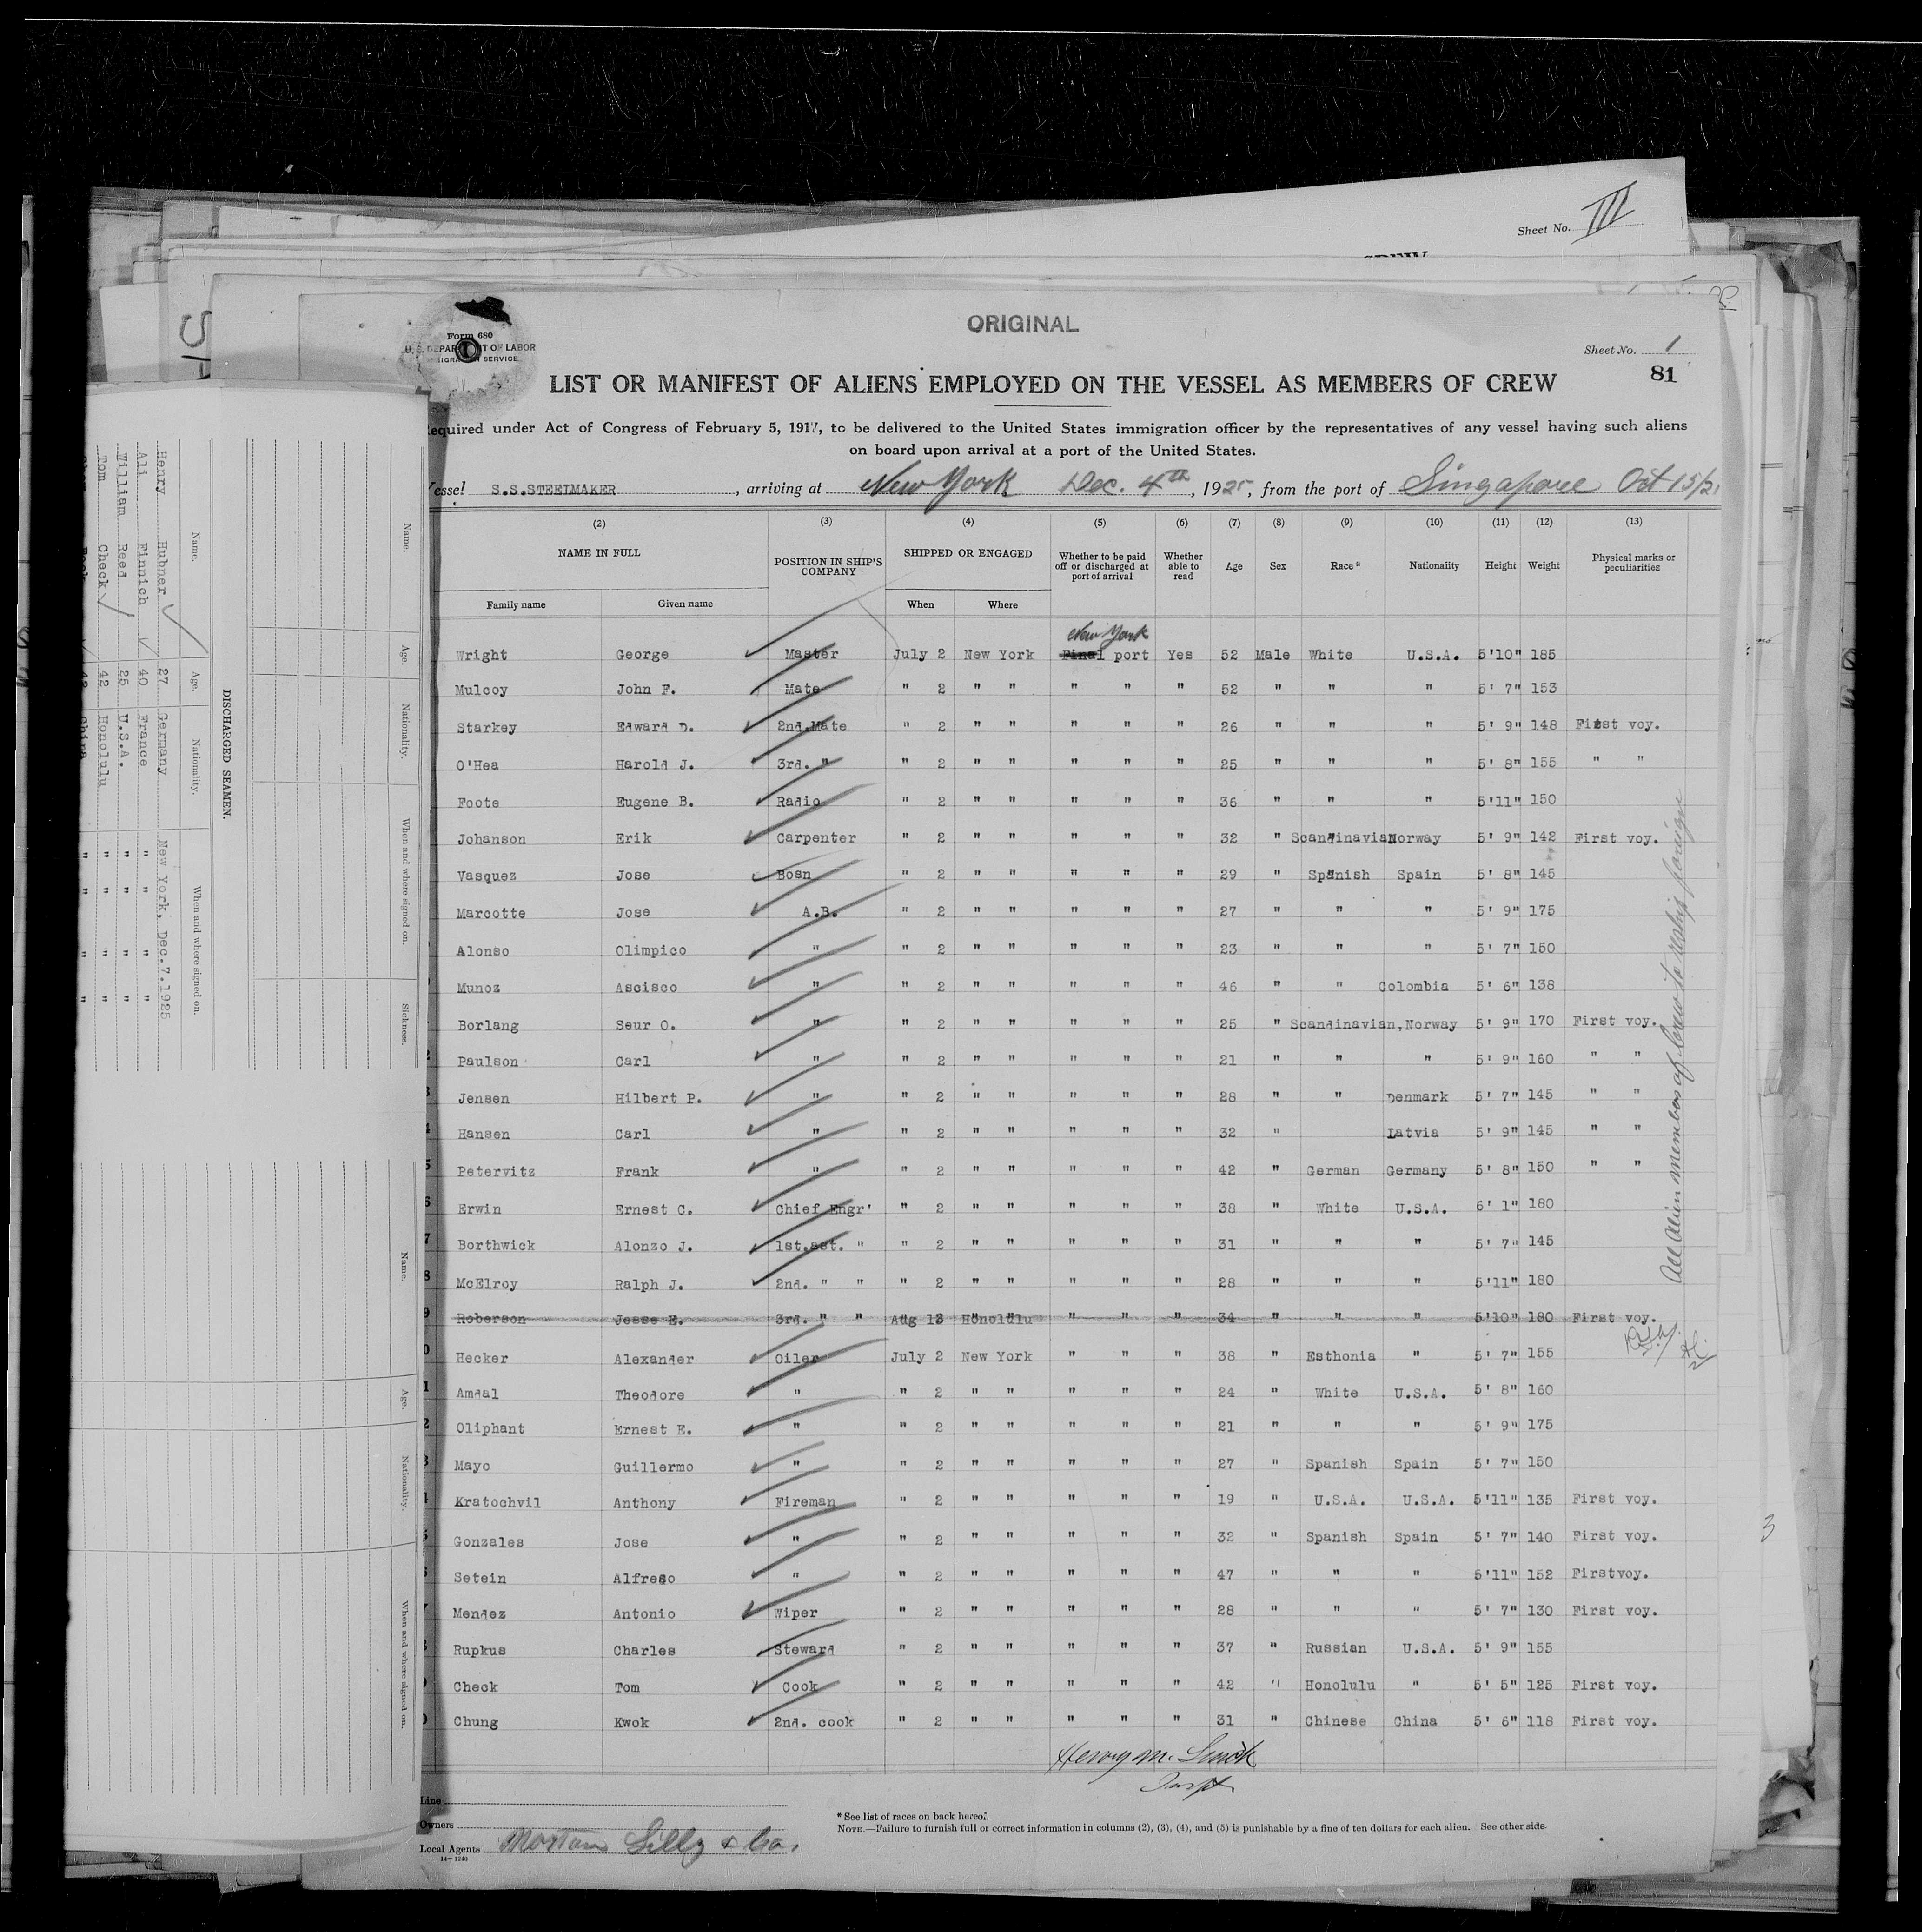 Sheet No. III
ORIGINAL
Form 680
U.S. DEPARTMENT OF LABOR
IMMIGRATION SERVICE
Sheet No. 1
81
LIST OR MANIFEST OF ALIENS EMPLOYED ON THE VESSEL AS MEMBERS OF CREW
Required under Act of Congress of February 5, 1917, to be delivered to the United States immigration officer by the representatives of any vessel having such aliens
on board upon arrival at a port of the United States.
Vessel S.S.STEELMAKER, arriving at New York Dec. 4th, 1925, from the port of Singapore Oct 15/2
(2) (3) (4) (5) (6) (7) (8) (9) (10) (11) (12) (13)
NAME IN FULL POSITION IN SHIP'S COMPANY SHIPPED OR ENGAGED Whether to be paid off or discharged at port of arrival Whether able to read Age Sex Race* Nationality Height Weight Physical marks or peculiarities
Family name Given name When Where
New York
Wright George Master July 2 New York Final port Yes 52 Male White U.S.A. 5'10" 185
Mulcoy John F. Mate " 2 " " " " " 52 " " " 5' 7" 153
Starkey Edward D. 2nd.Mate " 2 " " " " " 26 " " " 5' 9" 148 First voy.
O'Hea Harold J. 3rd. " " 2 " " " " " 25 " " " 5' 8" 155 " "
Foote Eugene B. Radio " 2 " " " " " 36 " " " 5'11" 150
Johanson Erik Carpenter " 2 " " " " " 32 " Scandinavian Norway 5' 9" 142 First voy.
Vasquez Jose Bosn " 2 " " " " " 29 " Spanish Spain 5' 8" 145
Marcotte Jose A.B. " 2 " " " " " 27 " " " 5' 9" 175
Alonso Olimpico " " 2 " " " " " 23 " " " 5' 7" 150
Munoz Ascisco " " 2 " " " " " 46 " " Colombia 5' 6" 138
Borlang Seur O. " " 2 " " " " " 25 " Scandinavian, Norway 5' 9" 170 First voy.
Paulson Carl " " 2 " " " " " 21 " " " 5' 9" 160 " "
Jensen Hilbert P. " " 2 " " " " " 28 " " Denmark 5' 7" 145 " "
Hansen Carl " " 2 " " " " " 32 " Latvia 5' 9" 145 " "
Petervitz Frank " " 2 " " " " " 42 " German Germany 5' 8" 150 " "
Erwin Ernest C. Chief Engr' " 2 " " " " " 38 " White U.S.A. 6' 1" 180
Borthwick Alonzo J. 1st.ast. " " 2 " " " " " 31 " " " 5' 7" 145
McElroy Ralph J. 2nd. " " " 2 " " " " " 28 " " " 5'11" 180
Roberson Jesse E. 3rd. " " Aug 13 Honolulu " " " 34 " " " 5'10" 180 First voy.
Hecker Alexander Oiler July 2 New York " " " 38 " Esthonia " 5' 7" 155
Amdal Theodore " " 2 " " " " " 24 " White U.S.A. 5' 8" 160
Oliphant Ernest E. " " 2 " " " " " 21 " " " 5' 9" 175
Mayo Guillermo " " 2 " " " " " 27 " Spanish Spain 5' 7" 150
Kratochvil Anthony Fireman " 2 " " " " " 19 " U.S.A. U.S.A. 5'11" 135 First voy.
Gonzales Jose " " 2 " " " " " 32 " Spanish Spain 5' 7" 140 First voy.
Setein Alfredo " " 2 " " " " " 47 " " " 5'11" 152 Firstvoy.
Mendez Antonio Wiper " 2 " " " " " 28 " " " 5' 7" 130 First voy.
Rupkus Charles Steward " 2 " " " " " 37 " Russian U.S.A. 5' 9" 155
Check Tom Cook " 2 " " " " " 42 " Honolulu " 5' 5" 125 First voy.
Chung Kwok 2nd. cook " 2 " " " " " 31 " Chinese China 5' 6" 118 First voy.
All Alien members of Crew to reship foreign
Henry M.
Inspt.
Line
Owners
Local Agents Norton Lilly & Co.
14-1240
* See list of races on back hereof.
NOTE.—Failure to furnish full or correct information in columns (2), (3), (4), and (5) is punishable by a fine of ten dollars for each alien. See other side.
3
Name. Age. Nationality. When and where signed on. Sickness.
DISCHARGED SEAMEN.
Name. Age. Nationality. When and where signed on.
Henry Hubner 27 Germany New York, Dec.7.1925
Ali Finnich 40 France " " "
William Reed 25 U.S.A. " " "
Tom Check 42 Honolulu " " "
Name. Age. Nationality. When and where signed on.